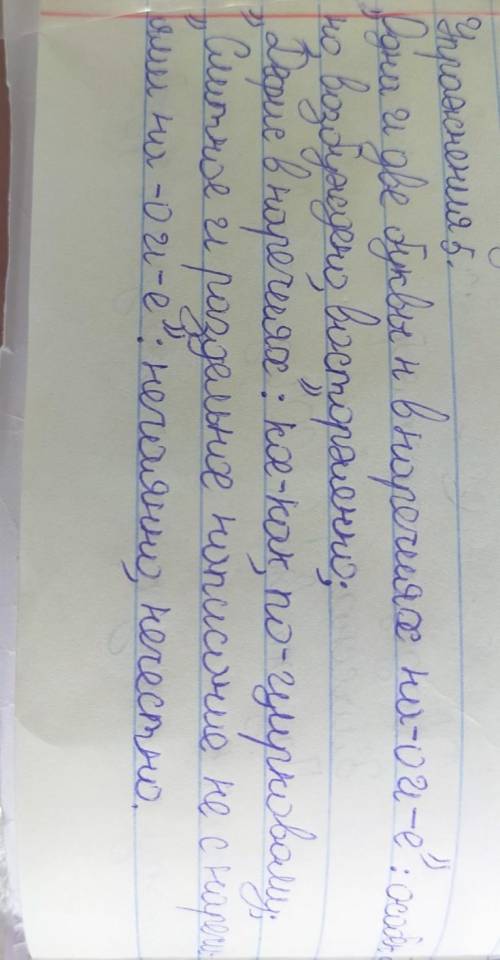 Упражнения 5.
„Одна и две буквы н в наречиях на -о и -е”: особен-
но возбуждено, восторженно;
„Дефис в наречиях”: кое-как, по-цирковому;
„Слитное и раздельное написание не с наречи-
ями на -о и -е”: нечаянно, нечестно.